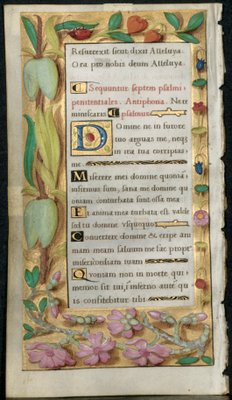 Resurrexit sicut dixit Alleluya.
Ora pro nobis deum Alleluya.
Sequuntur septem psalmi
penitentiales. Antiphona. Ne re
miniscaris Psalmus
Domine ne in furore
tuo arguas me, neq3
in ira tua corripias
me.
Miserere mei domine quoniā
infirmus sum, sana me domine qu
oniam conturbata sunt ossa mea
Et anima mea turbata est valde
sed tu domine usquequo
Convertere domine et eripe ani
mam meam salvum me fac propt
misericordiam tuam
Quoniam non in morte qui
memor sit tui, in inferno aute qu
is confitebitur tibi